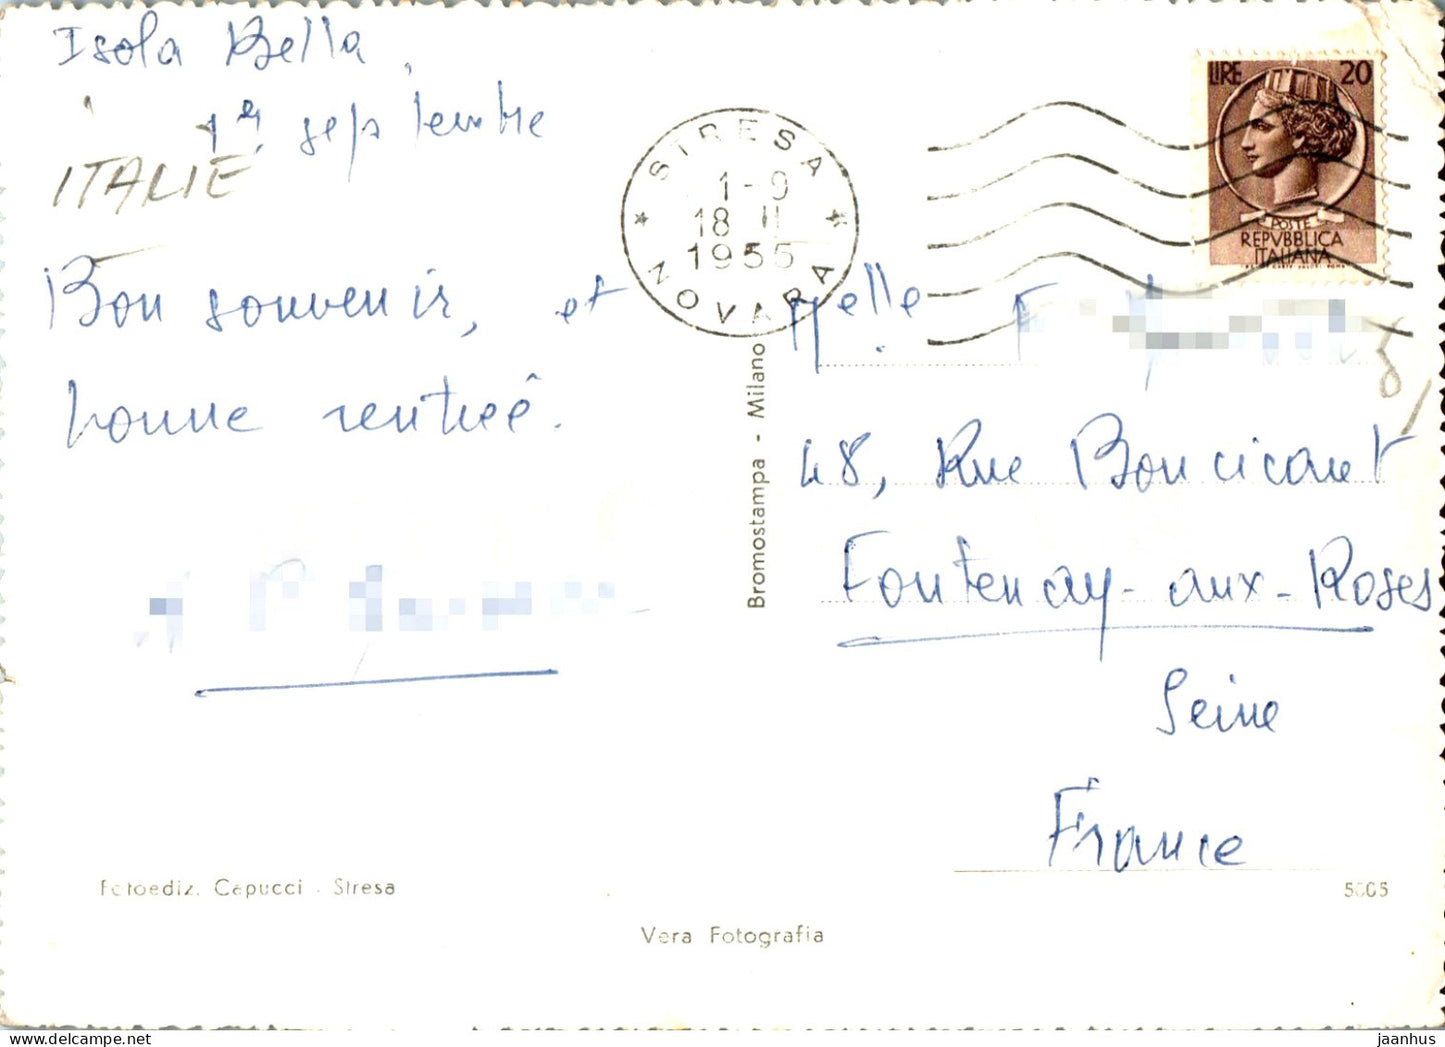 Isola Bella,
1er septembre
ITALIE
Bon souvenir, et
bonne rentrée.
STRESA
1-9
18
1955
NOVARA
LIRE 20
POSTE
REPVBBLICA
ITALIANA
Melle
48, Rue Boucicaut
Fontenay-aux-Roses
Seine
France
Bromostampa - Milano
Fotoediz. Capucci - Stresa
Vera Fotografia
jaanhus